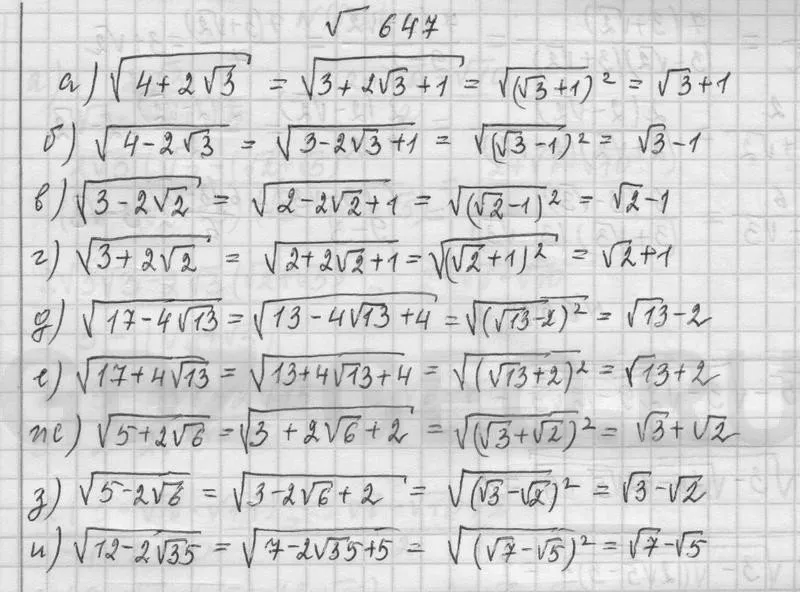 √ 647
а) √(4+2√3) = √(3+2√3+1) = √((√3+1)²) = √3+1
б) √(4-2√3) = √(3-2√3+1) = √((√3-1)²) = √3-1
в) √(3-2√2) = √(2-2√2+1) = √((√2-1)²) = √2-1
г) √(3+2√2) = √(2+2√2+1) = √((√2+1)²) = √2+1
д) √(17-4√13) = √(13-4√13+4) = √((√13-2)²) = √13-2
е) √(17+4√13) = √(13+4√13+4) = √((√13+2)²) = √13+2
ж) √(5+2√6) = √(3+2√6+2) = √((√3+√2)²) = √3+√2
з) √(5-2√6) = √(3-2√6+2) = √((√3-√2)²) = √3-√2
и) √(12-2√35) = √(7-2√35+5) = √((√7-√5)²) = √7-√5